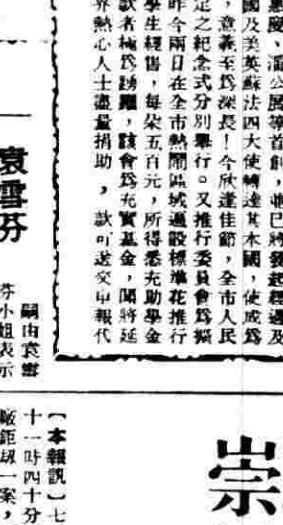 惠慶、潘公展等首創，並已將發起經過及
國及美英蘇法四大使轉達其本國，使成爲
，意義至爲深長！今欣逢佳節，全市人民
定之紀念式分別舉行。又推行委員會爲振
昨今兩日在全市熱鬧區域遍設標準花推行
學生經售，每朵五百元，所得悉充助學金
款者極爲踴躍，該會爲充實基金，聞將延
界熱心人士盡量捐助，款可送交申報代
袁雪芬
嗣由袁雪
芬小姐表示
崇
【本報訊】七
十一時四十分
廠鉅刼一案，